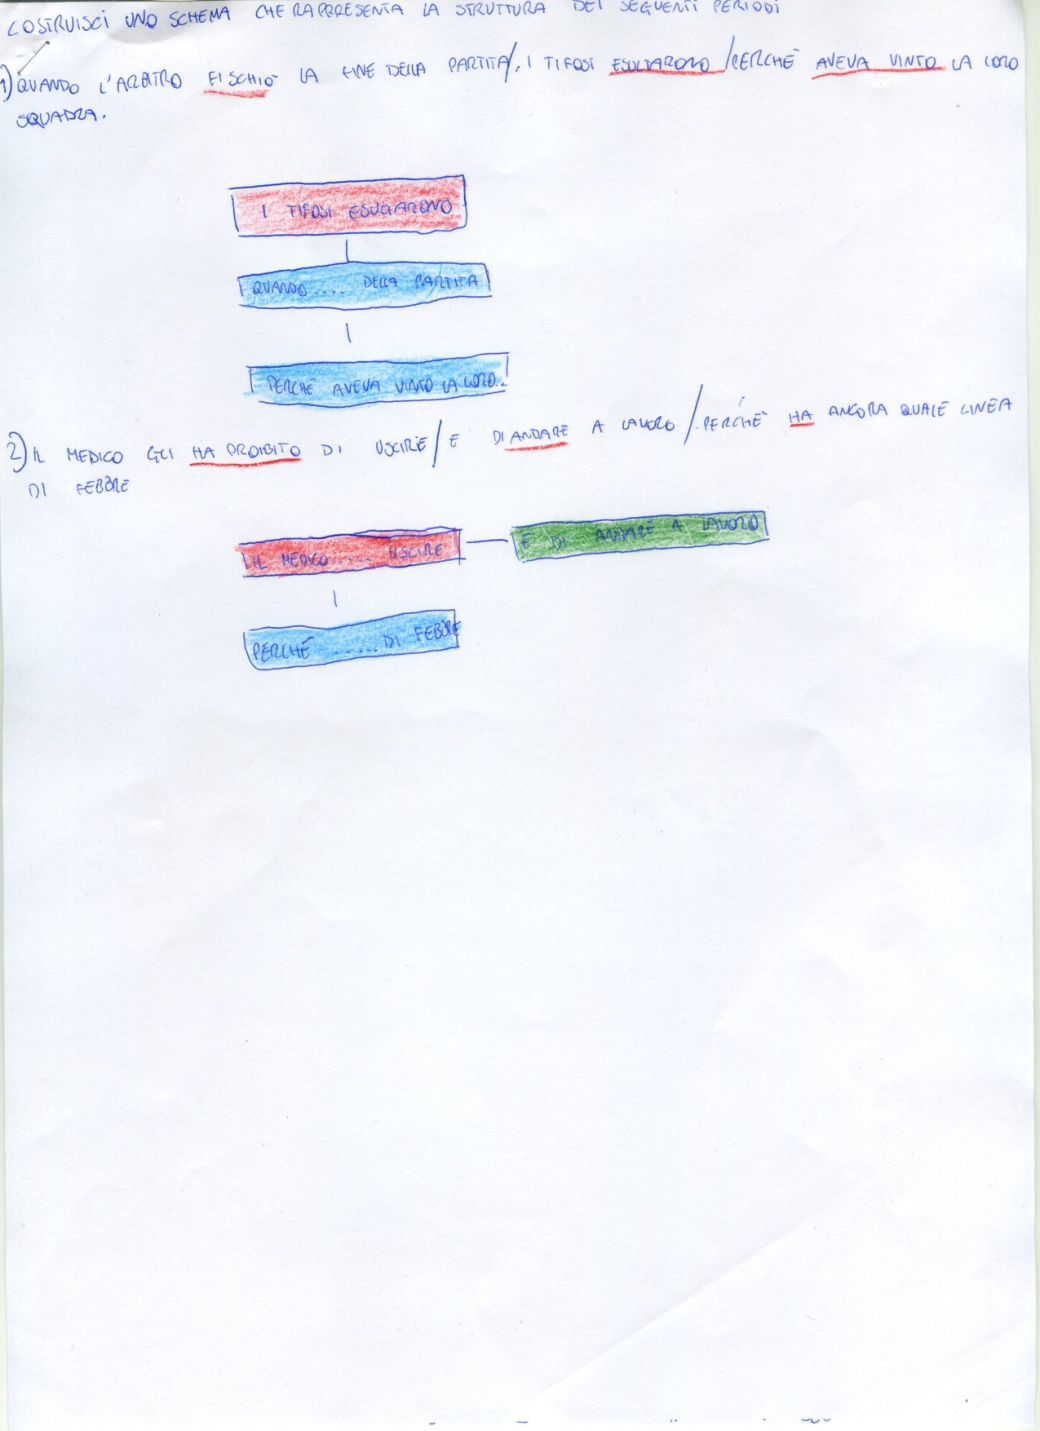 COSTRUISCI UNO SCHEMA CHE RAPPRESENTA LA STRUTTURA DEI SEGUENTI PERIODI
1) QUANDO L'ARBITRO FISCHIÒ LA FINE DELLA PARTITA/, I TIFOSI ESULTARONO /PERCHÈ AVEVA VINTO LA LORO
SQUADRA.
I TIFOSI ESULTARONO
QUANDO .... DELLA PARTITA
PERCHÈ AVEVA VINTO LA LORO..
2) IL MEDICO GLI HA PROIBITO DI USCIRE/ E DI ANDARE A LAVORO /PERCHÈ HA ANCORA QUALE LINEA
DI FEBBRE
IL MEDICO .... USCIRE E DI ANDARE A LAVORO
PERCHÉ ...... DI FEBBRE